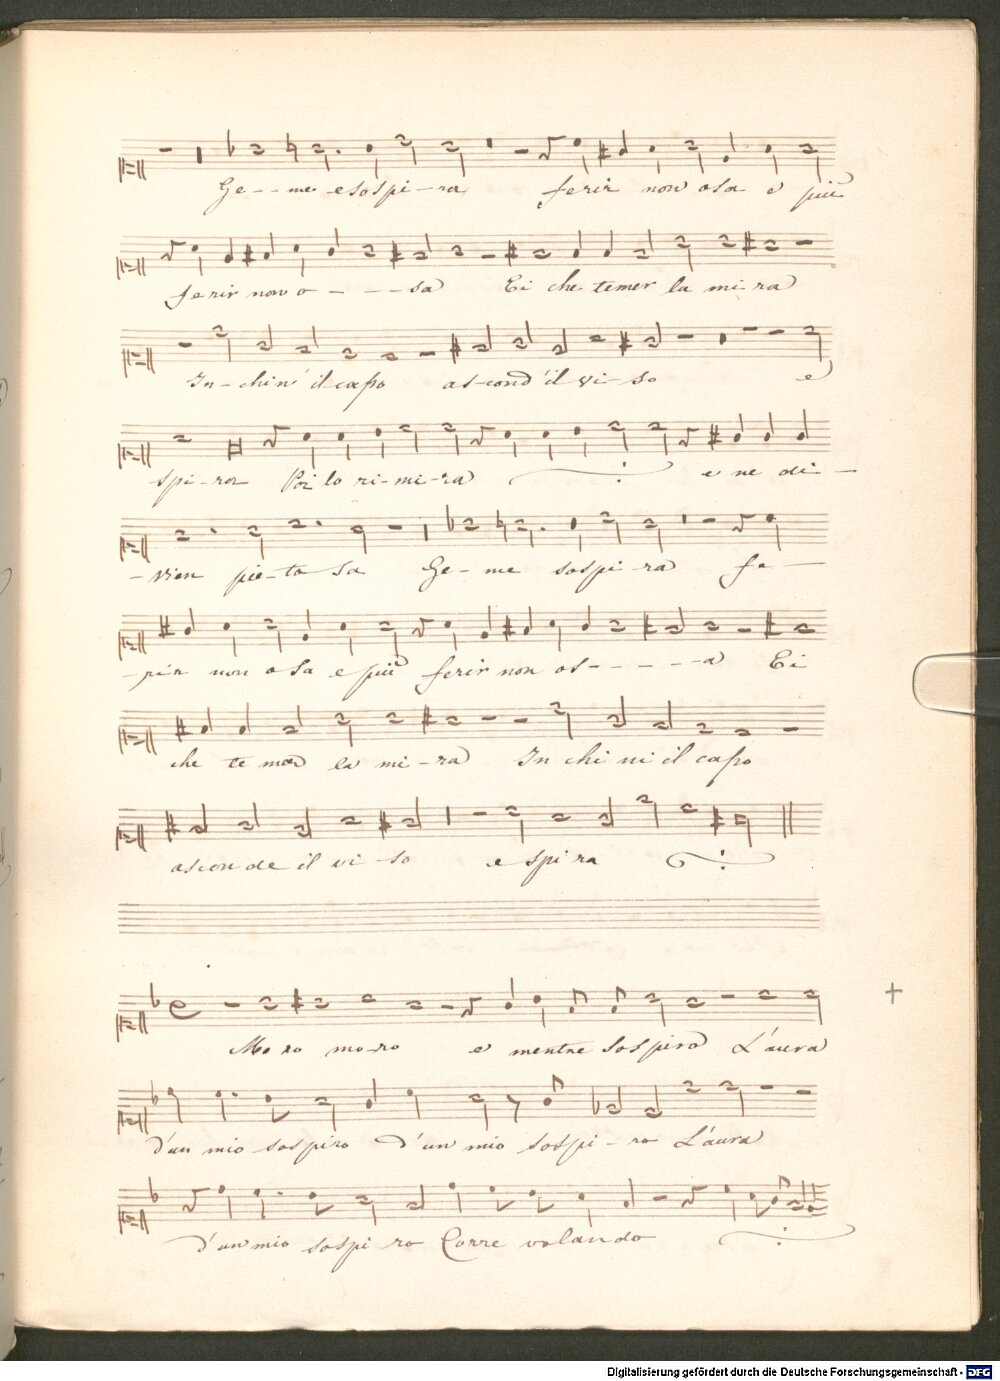 Ge - - me e sospi - ra ferir non osa e più
ferir non o - - - sa Ei che temer la mi - ra
In - chin' il capo ascond' il vi - so e
spi - ra Poi lo ri - mi - ra e ne di -
- vien pie - to sa Ge - me sospi - ra fe -
- rir non osa e più ferir non os - - - - - a Ei
che te mer la mi - ra In chi ni il capo
ascon de il vi - so e spi ra
Mo ro mo - ro e mentre sospiro L'aura
d'un mio sospiro d'un mio sospi - ro L'aura
d'un mio sospi ro Corre volando
+
Digitalisierung gefördert durch die Deutsche Forschungsgemeinschaft - DFG